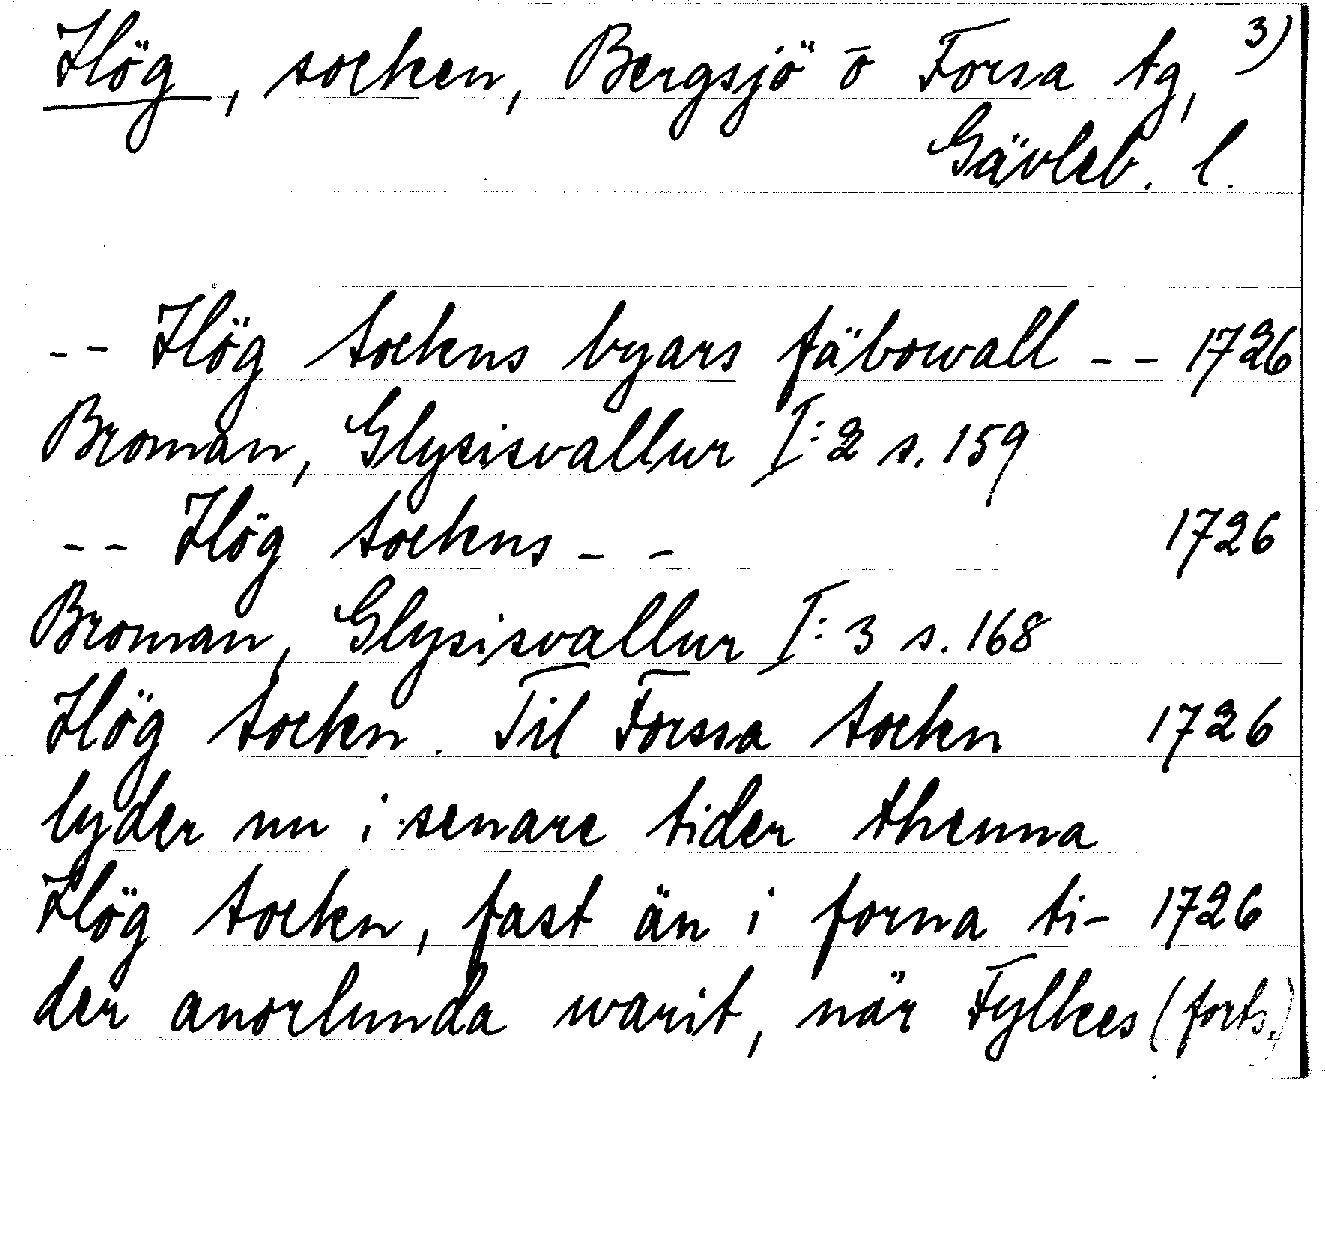 Hög, socken, Bergsjö o Forsa tg, 3)
Gävleb. l.
-- Hög sockns byars fäbowall -- 1726
Broman, Glysisvallur I:2 s. 159
-- Hög sockns -- 1726
Broman, Glysisvallur I:3 s. 168
Hög sockn. Til Forssa sockn 1726
lyder nu i senare tider thenna
Hög sockn, fast än i forna ti- 1726
der anorlunda warit, när Fylkes (forts.)